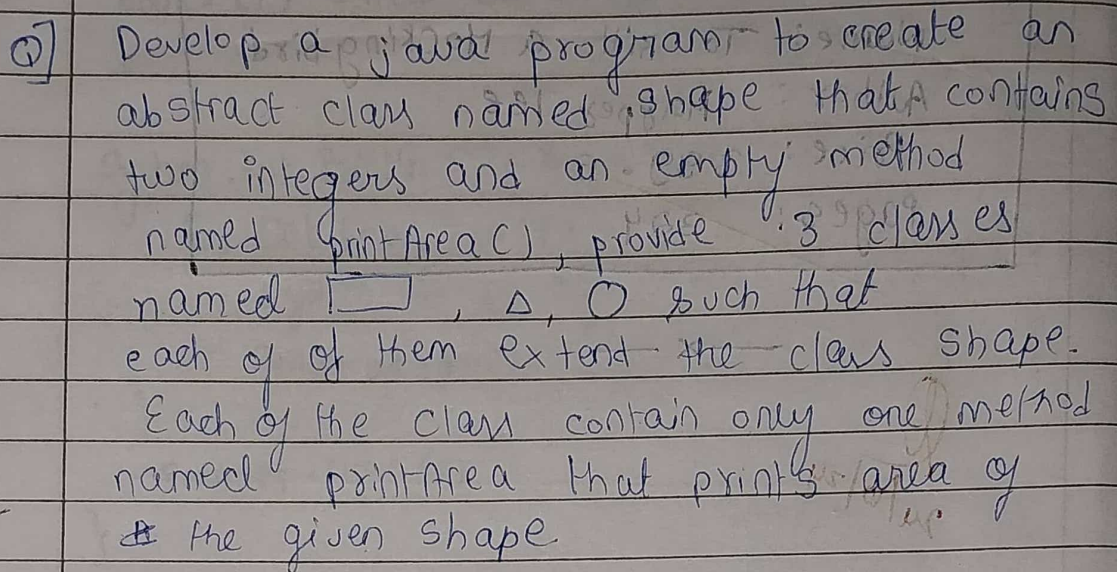 Q] Develop a java program to create an
abstract class named shape that contains
two integers and an empty method
named printArea(), provide 3 classes
named ▭, △, ○ such that
each of of them extend the class shape.
Each of the class contain only one method
named printArea that prints area of
the given shape